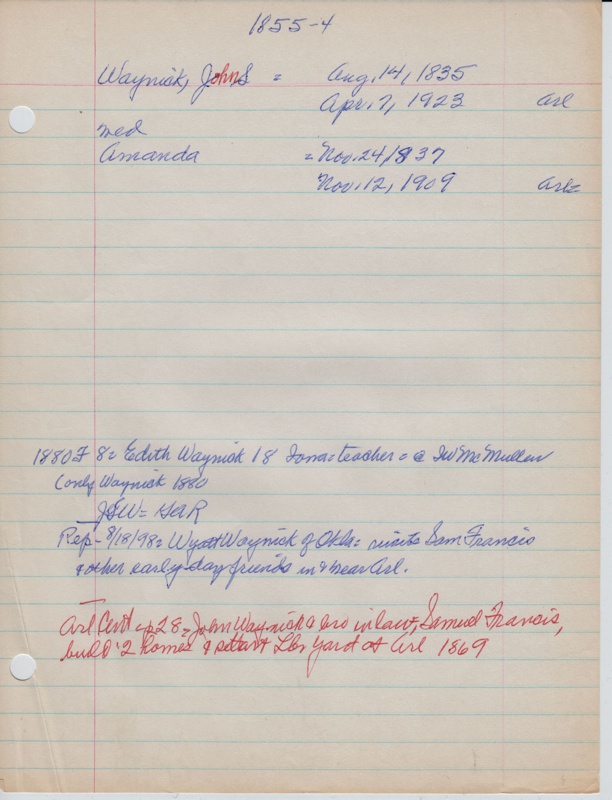 1855-4
Waynick, John S = Aug. 14, 1835
Apr. 7, 1923 Arl
wed
Amanda = Nov. 24, 1837
Nov. 12, 1909 Arl=
1880 F 8 = Edith Waynick 18 Iowa = teacher = @ JW McMullen
(only Waynick 1880
JSW = GAR
Rep - 8/18/98 = Wyatt Waynick of Okla = visits Sam Francis
& other early day friends in & near Arl.
Arl Cent p 28 = John Waynick & bro in law, Samuel Francis,
build 2 homes & Lbr Yard at Arl 1869